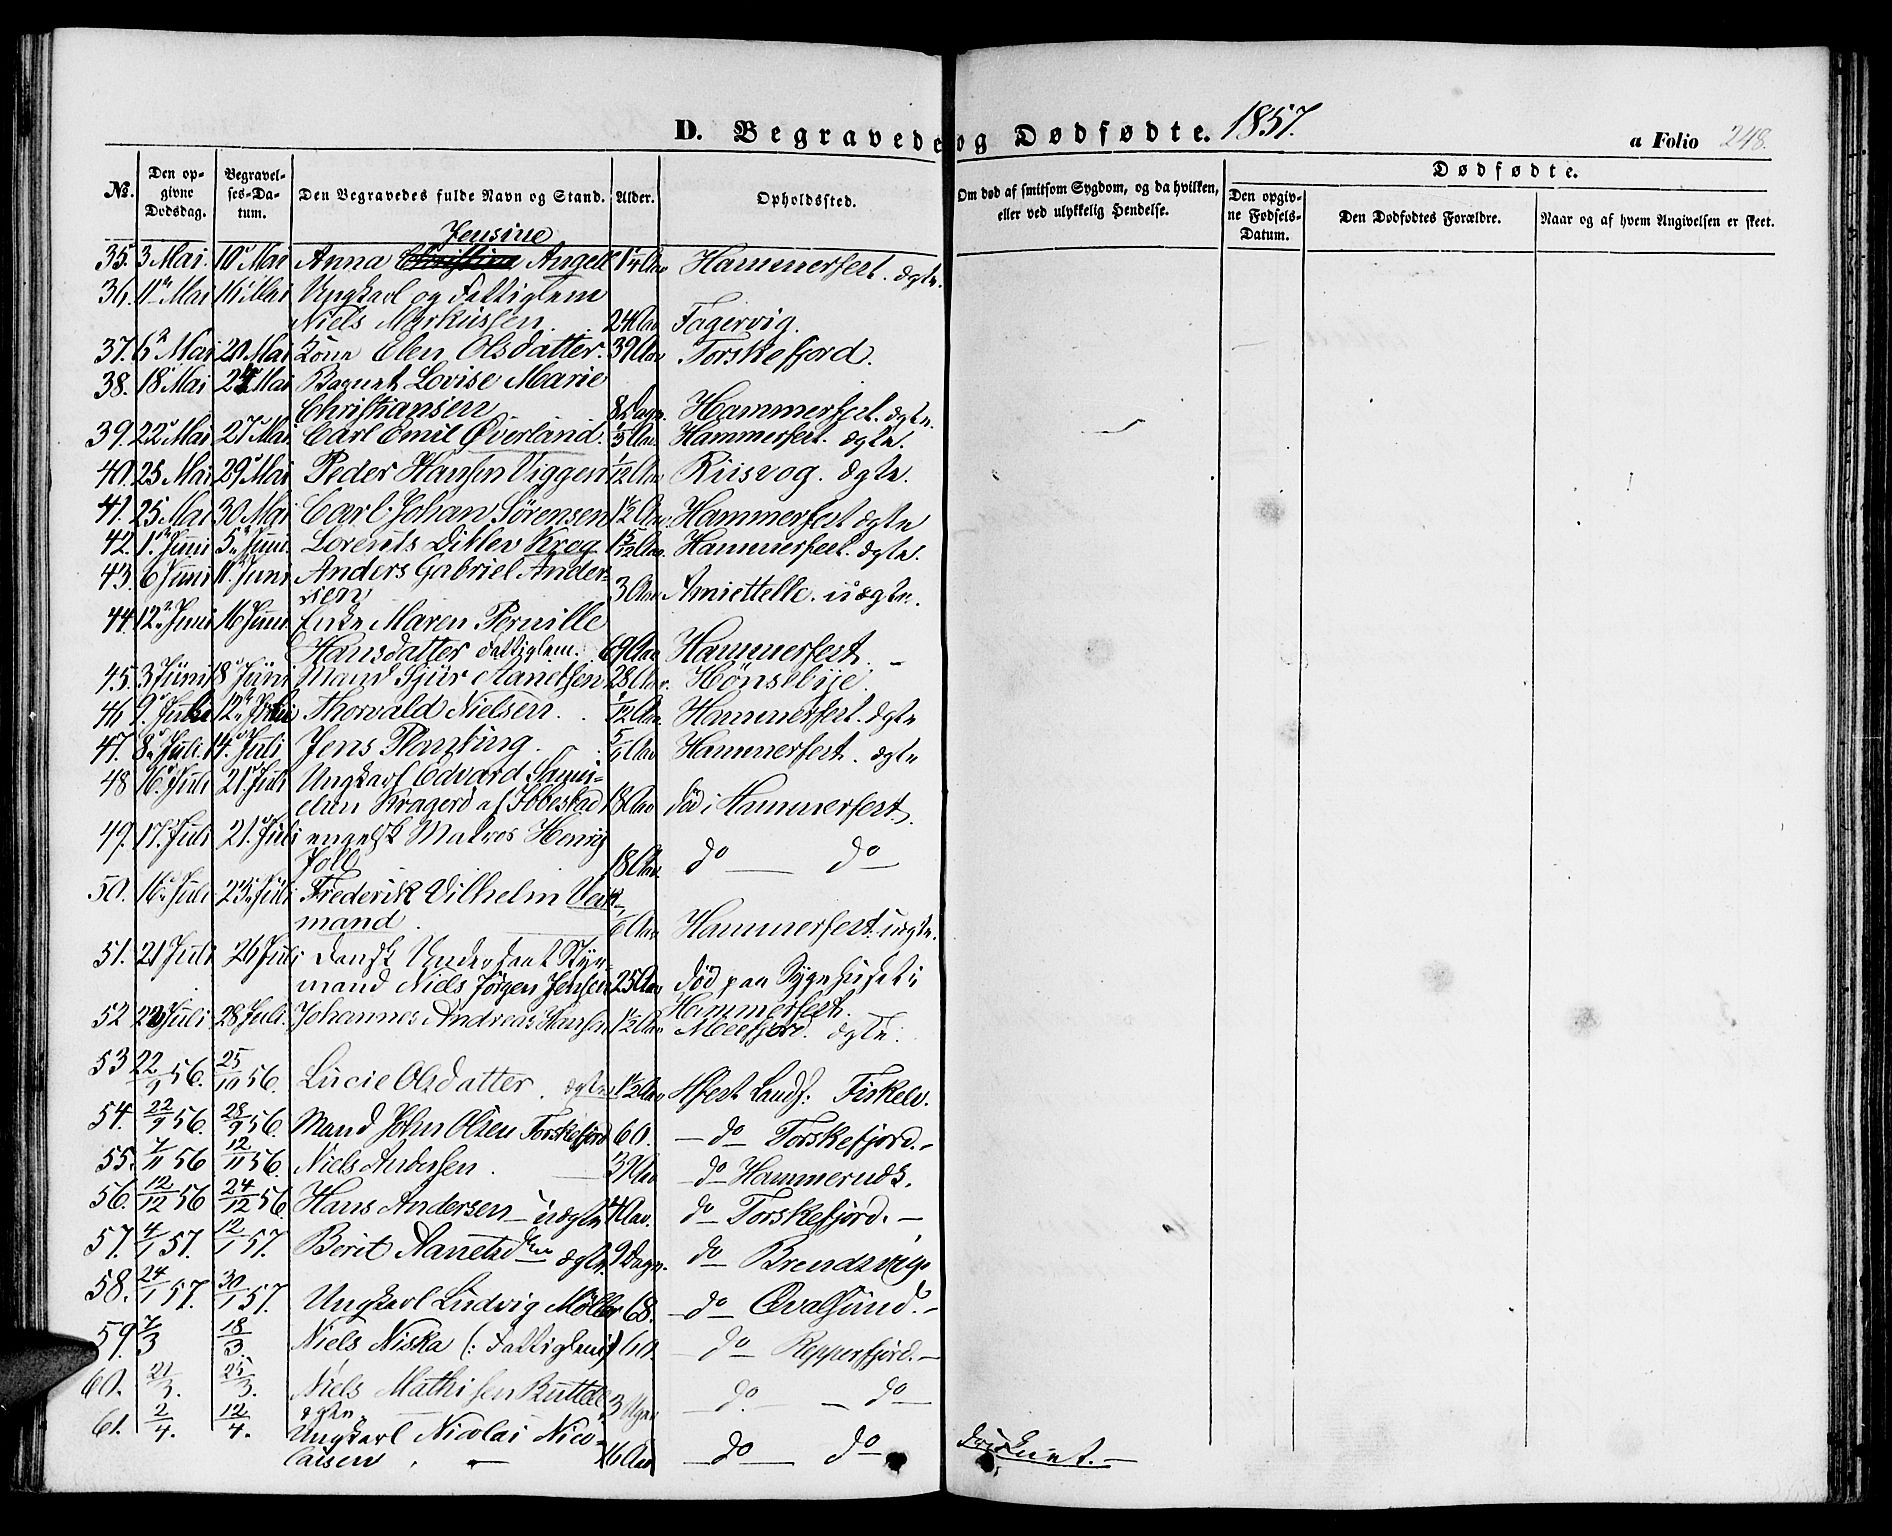 D. Begravede og Dødfødte. 1857.
a Folio 248.
No. Den opgivne Dødsdag. Begravelses-Datum. Den Begravedes fulde Navn og Stand. Alder. Opholdssted. Om død af smitsom Sygdom, og da hvilken, eller ved ulykkelig Hendelse. Dødfødte. Den opgivne Fødsels-Datum. Den Dødfødtes Forældre. Naar og af hvem Angivelsen er skeet.
Jensine
35. 3 Mai. 10 Mai Anna Christina Angell 1 1/4 Aar Hammerfest. ægte.
36. 11 Mai 16 Mai Ungkarl og Fattiglem
Niels Markussen. 24 Aar Fagervig.
37. 6 Mai 20 Mai Kone Elen Olsdatter. 39 Aar Torskefjord.
38. 18 Mai 24 Mai Lovise Marie
Christiansen 8 Dage Hammerfest. ægte.
39. 22 Mai 27 Mai. Carl Emil Øverland. Aar Hammerfest. ægte.
40. 25 Mai 29 Mai Peder Hansen Viggen 1/12 Aar Riisvog. ægte.
41. 25 Mai 30 Mai Carl Johan Sörensen 1 1/2 Aar Hammerfest ægte
42. 1. Juni 5. Juni. Lorents Ditlev Krog 1 5/12 Aar. Hammerfest. ægte.
43. 6 Juni 11. Juni Anders Gabriel Ander-
sen 3 Aar uægte.
44. 12. Juni 16 Juni Enke Maren Pernille
Hansdatter Fattiglem. 69 Aar Hammerfest. –
45. 3 Juni 18 Juni Mand Sjur Aanetsen 28 Aar. Hönsebye.
46 9. Juli 12. Juli Thorvald Nielsen. 1/12 Aar. Hammerfest. ægte
47. 8. Juli. 14. Juli Jens Planting. Aar Hammerfest. ægte
48 16. Juli 21. Juli Ungkarl Edvard
Kragerö af Ibbestad 18 Aar död i Hammerfest.
49. 17. Juli 21. Juli engelsk Matros Henry
Joll 18 Aar. do — do
50. 16. Juli 23. Juli Frederik Vilhelm
mand. Aar Hammerfest. uægte.
51. 21 Juli 26 Juli Dansk Undersaat Styr-
mand Niels Jörgen Jensen 25 Aar död paa Sygehuset i
Hammerfest.
52 Juli 28 Juli. Johannes Andreas Hansen 1 1/2 Aar Meefjord. ægte.
53 22/9 56. 25/10 56. Lucie Olsdatter. ægte 1 1/2 Aar Hfest Landf: Fiskelv.
54. 22/9 56. 28/9 56. Mand John Olsen Torskefjord 60. – do Torskefjord. –
55. 7/11 56 12/11 56. Niels Andersen. 39 Aar – do Hammernæs.
56. 12/12 56 24/12 56. Hans Andersen – uægte 4 Aar. do Torskefjord. –
57. 4/1 57. 12/1 57. Berit Aanetsd ægte. 9 Dage. do Brendsvig.
58. 24/1 57. 30/1 57. Ungkarl Ludvig Möller 68. – do Qvalsund. –
59. 7/3 18/3. Niels Niska (: Fattiglem :) 60. – do Repperfjord. –
60. 21/3. 25/3. Niels Mathisen 3 Uger – do. – do –
ægte.
61. 2/4. 12/4. Ungkarl Nicolai Nico-
laisen. 16 Aar – do – do druknet. –